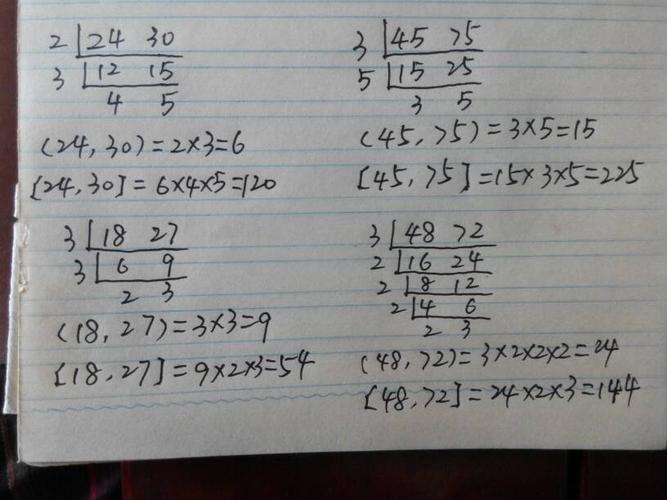 2 24 30
3 12 15
4 5
(24, 30) = 2×3=6
[24, 30] = 6×4×5=120
3 45 75
5 15 25
3 5
(45, 75) = 3×5=15
[45, 75] = 15×3×5=225
3 18 27
3 6 9
2 3
(18, 27) = 3×3=9
[18, 27] = 9×2×3=54
3 48 72
2 16 24
2 8 12
2 4 6
2 3
(48, 72) = 3×2×2×2=24
[48, 72] = 24×2×3=144